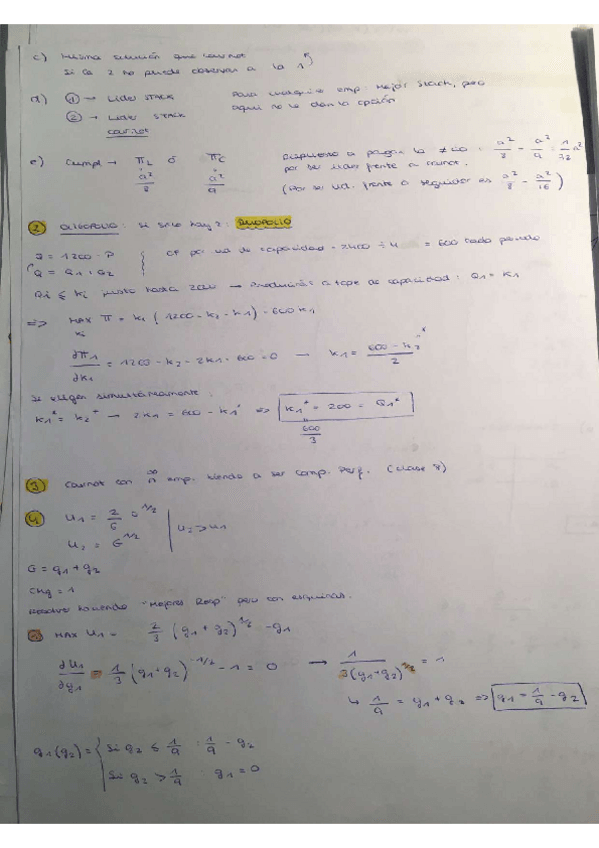 c) misma solución que Cournot
Si la 2 no puede observar a la 1
d) ① → Lider STACK Para cualquier emp. mejor Stack, pero
② → Lider STACK aquí no le dan la opción
Cournot
e) Cumpl → π_L ó π_C Dispuesto a pagar la ≠ cia = a²/8 - a²/9 = 1/72 a²
a²/8 a²/9 por ser lider frente a Cournot.
(Por ser lid. frente a seguidor es a²/8 - a²/16)
② OLIGOPOLIO: si solo hay 2: DUOPOLIO
Q = 1200 - P CF por ud de capacidad = 2400 ÷ 4 = 600 cada periodo
Q = Q1 + Q2
Qi ≤ Ki justo hasta → producirás a tope de capacidad: Q1 = K1
=> MAX π = K1 (1200 - K2 - K1) - 600 K1
K1
∂π1/∂K1 = 1200 - K2 - 2K1 - 600 = 0 → K1 = (600 - K2)/2
Si eligen simultáneamente:
K1* = K2* → 2K1 = 600 - K1* => K1* = 200 = Q1*
600/3
③ Cournot con n emp. tiende a ser comp. Perf. (clase 8)
④ U1 = 2/3 G^1/2
U2 = G^1/2 U2 > U1
G = g1 + g2
CMg = 1
Resolver haciendo "Mejores Resp" pero con esquinas.
MAX U1 = 2/3 (g1 + g2)^1/2 - g1
∂U1/∂g1 = 1/3 (g1 + g2)^-1/2 - 1 = 0 → 1/(3(g1+g2)^1/2) = 1
↳ 1/9 = g1 + g2 => g1 = 1/9 - g2
g1(g2) = { Si g2 ≤ 1/9 : 1/9 - g2
Si g2 > 1/9 : g1 = 0